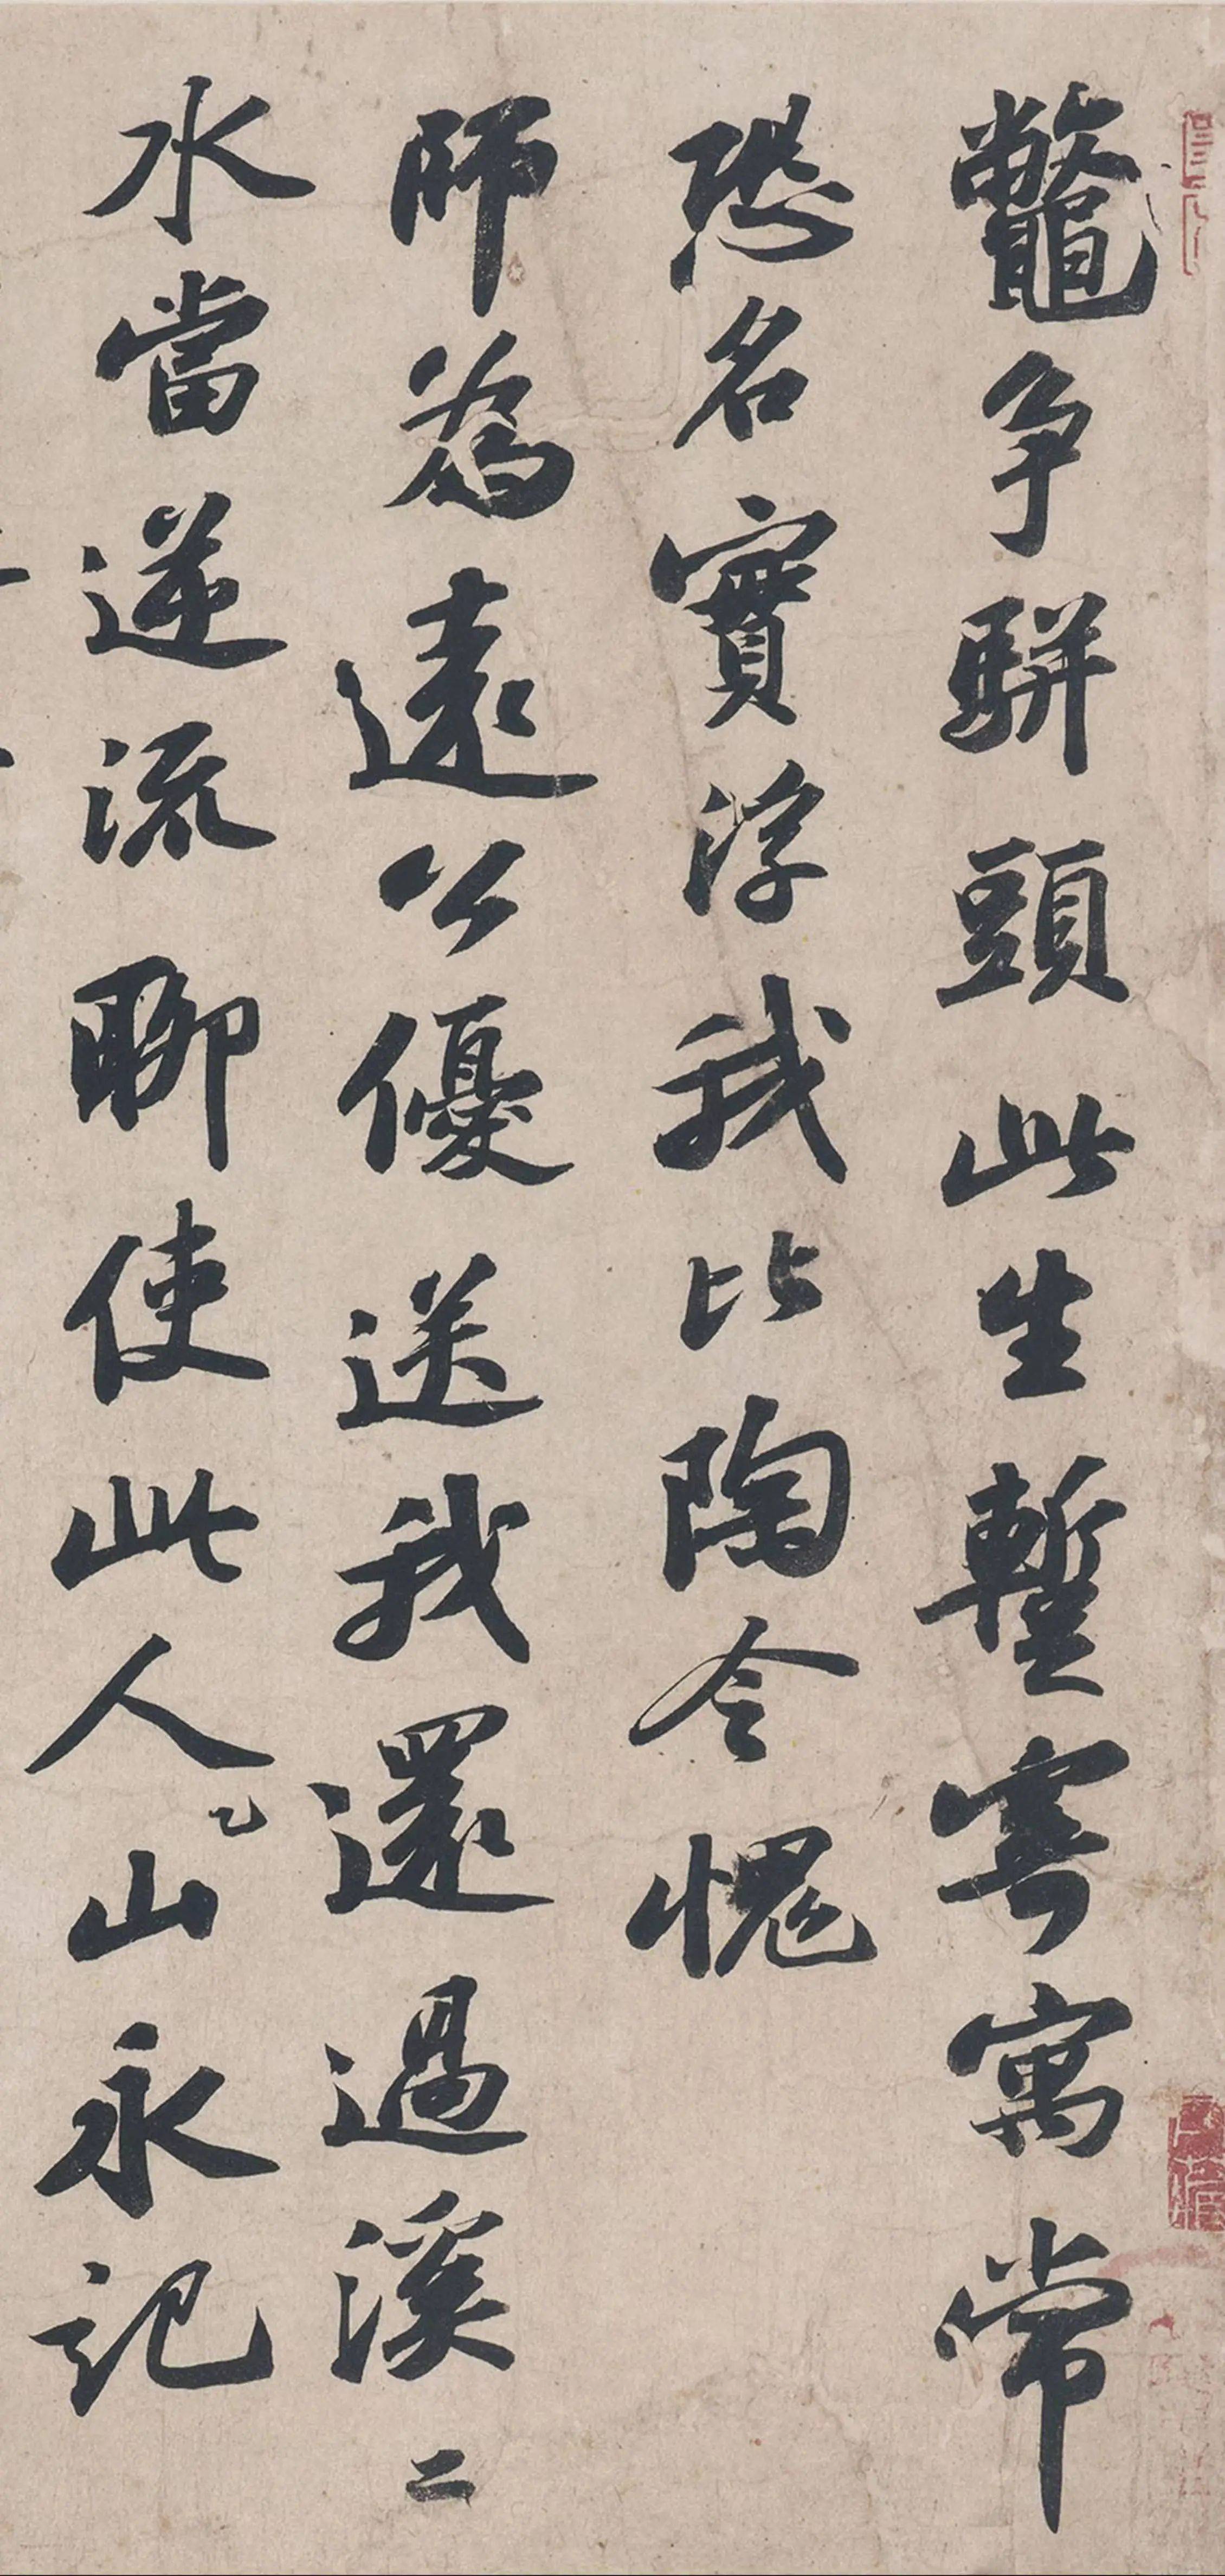 鼈争駢頭此生暫寄寓常
恐名實浮我比陶令愧
師為遠公優送我還過溪二
水當逆流聊使此人〻山永記